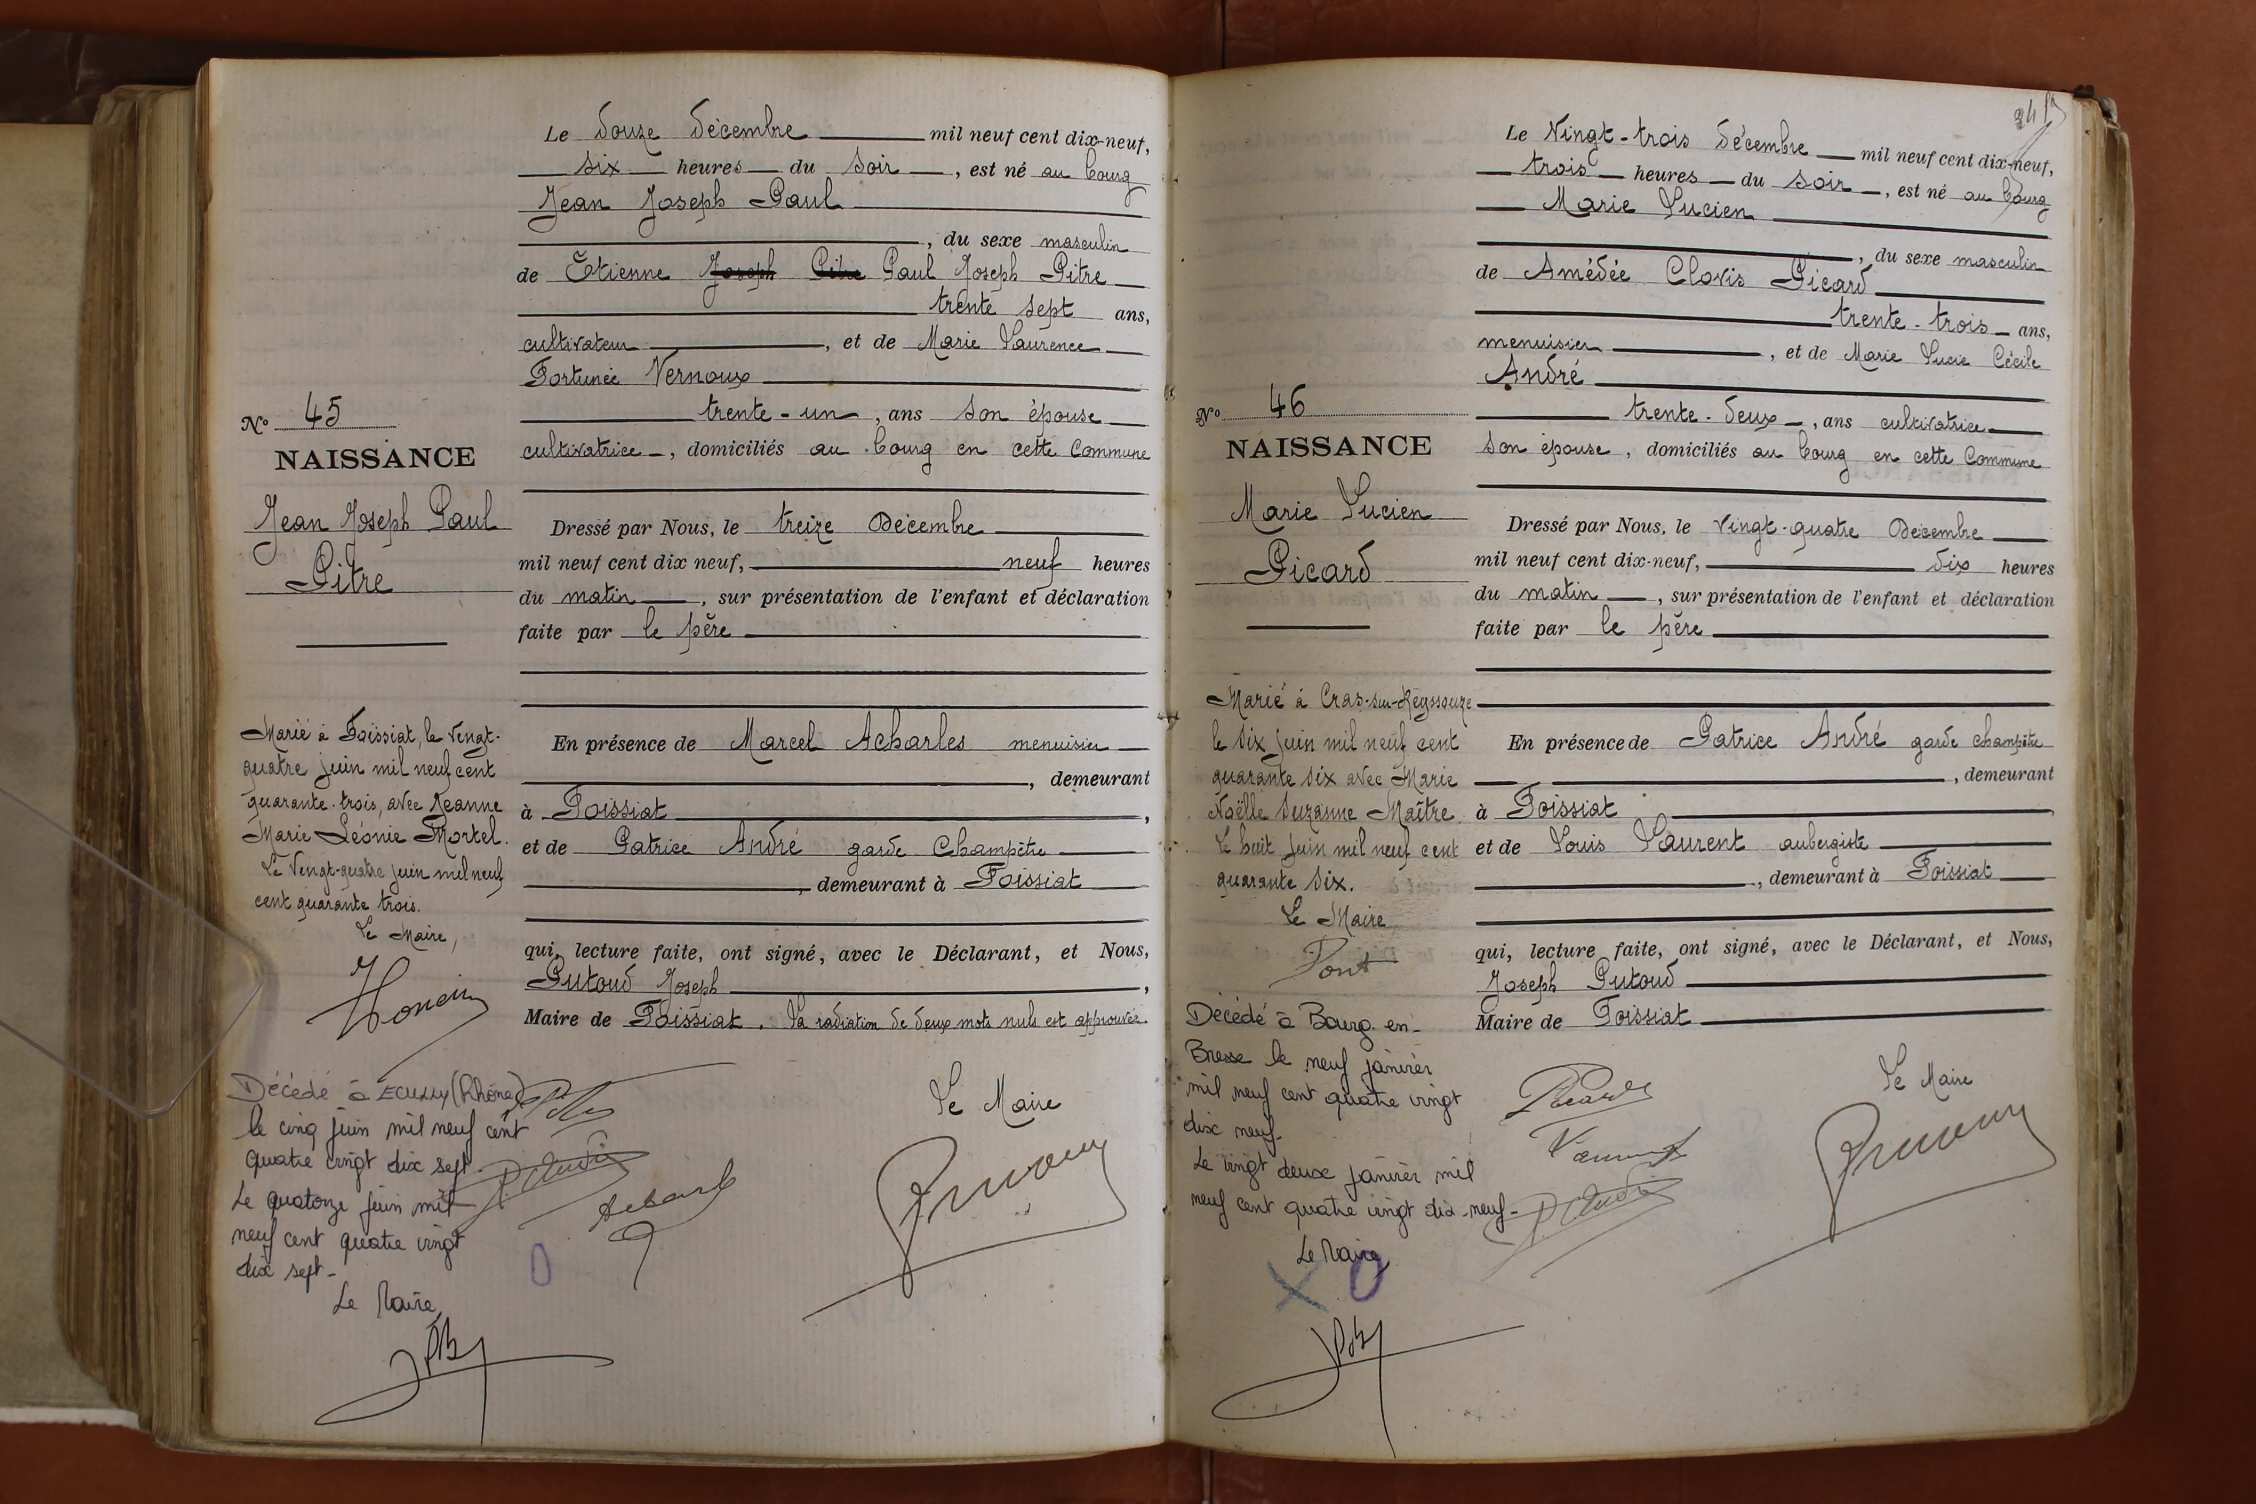 Le douze décembre mil neuf cent dix-neuf,
six heures du soir, est né au bourg
Jean Joseph Paul
, du sexe masculin
de Etienne Joseph Pitre Paul Joseph Pitre
trente sept ans,
cultivateur, et de Marie Laurence
Fortunée Vernoux
trente-un, ans son épouse
cultivatrice, domiciliés au bourg en cette Commune
Nº 45
NAISSANCE
Jean Joseph Paul
Pitre
Dressé par Nous, le treize Décembre
mil neuf cent dix neuf, neuf heures
du matin, sur présentation de l'enfant et déclaration
faite par le père
En présence de Marcel Acharles menuisier
, demeurant
à Foissiat,
et de Patrice André garde Champêtre
, demeurant à Foissiat
qui, lecture faite, ont signé, avec le Déclarant, et Nous,
Putoud Joseph,
Maire de Foissiat. La radiation de deux mots nuls est approuvée
Le Maire
Marié à Foissiat, le vingt-
quatre juin mil neuf cent
quarante-trois, avec Jeanne
Marie Léonie Mortel.
Le vingt-quatre juin mil neuf
cent quarante trois.
Le Maire,
Décédé à ECULLY (Rhône)
le cinq juin mil neuf cent
quatre vingt dix sept-
Le quatorze juin mil
neuf cent quatre vingt
dix sept-
Le Maire,
Le Vingt-trois décembre mil neuf cent dix-neuf,
trois heures du soir, est né au bourg
Marie Lucien
, du sexe masculin
de Amédée Clovis Picard
trente-trois ans,
menuisier, et de Marie Lucie Cécile
André
trente-deux, ans cultivatrice
son épouse, domiciliés au bourg en cette Commune
Nº 46
NAISSANCE
Marie Lucien
Picard
Dressé par Nous, le vingt-quatre Décembre
mil neuf cent dix-neuf, dix heures
du matin, sur présentation de l'enfant et déclaration
faite par le père
En présence de Patrice André garde champêtre
, demeurant
à Foissiat,
et de Louis Laurent aubergiste
, demeurant à Foissiat
qui, lecture faite, ont signé, avec le Déclarant, et Nous,
Joseph Putoud
Maire de Foissiat
Le Maire
Marié à Cras-sur-Reyssouze
le six juin mil neuf cent
quarante six avec Marie
Noëlle Suzanne Maître.
Le huit juin mil neuf cent
quarante six.
Le Maire
Pont
Décédé à Bourg-en-
Bresse le neuf janvier
mil neuf cent quatre vingt
dix neuf-
Le vingt deux janvier mil
neuf cent quatre vingt dix-neuf-
Le Maire